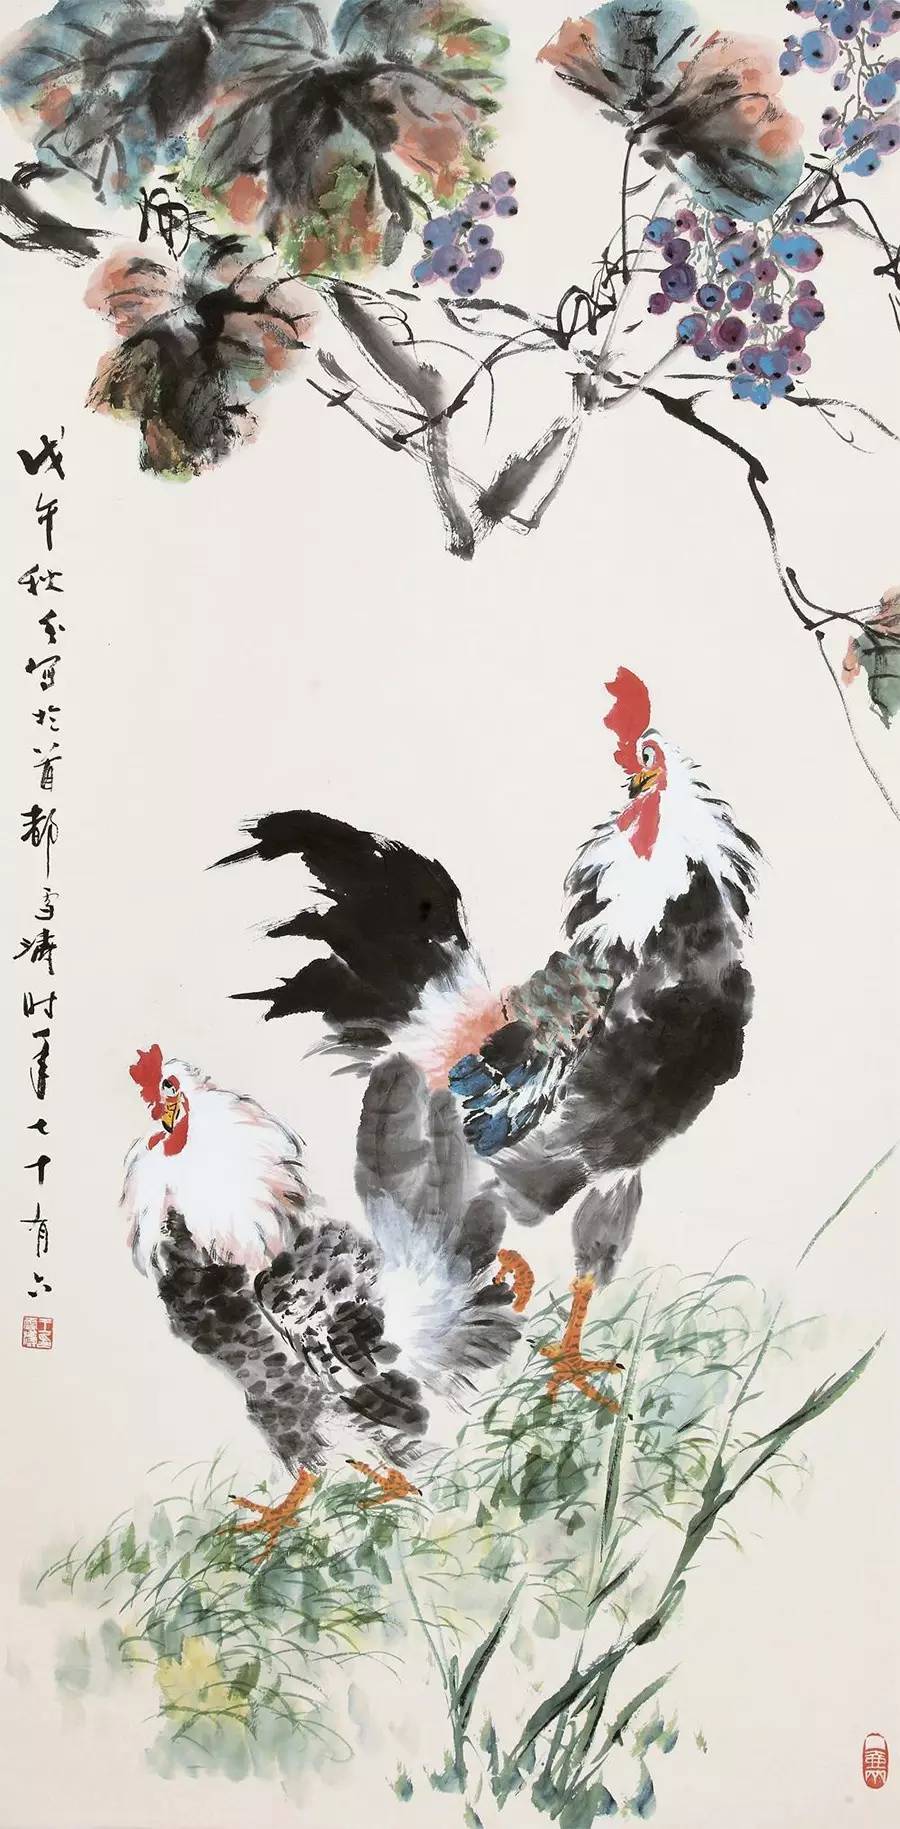 戊午秋分寫於首都雪濤时年七十有六